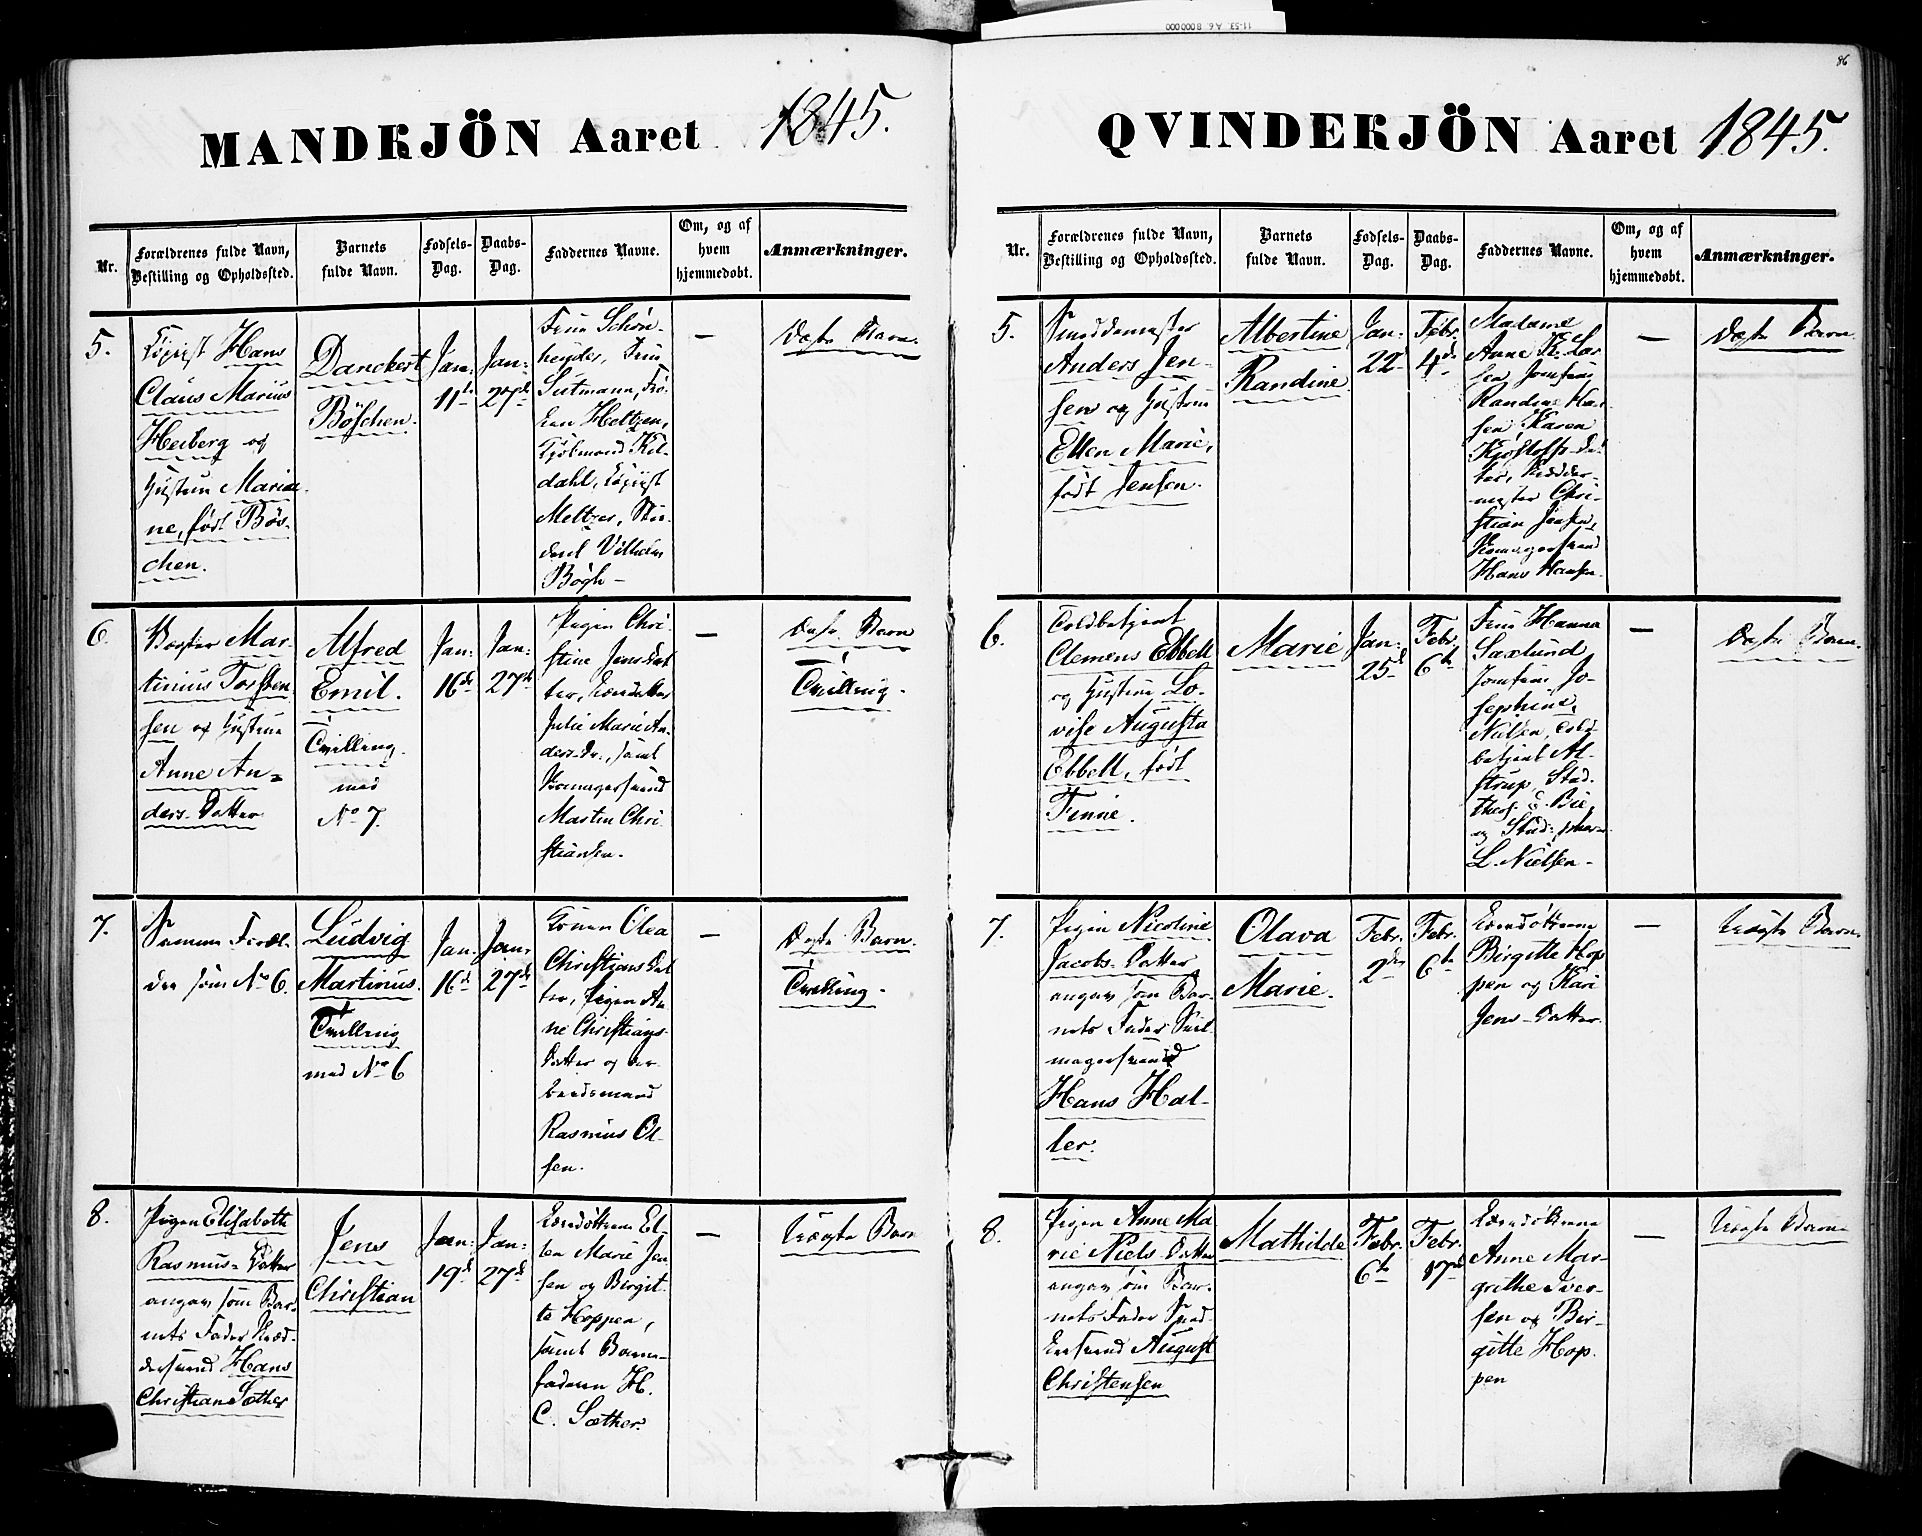 11-53. A6. 8000000
86
MANDKJÖN Aaret 1845.
Nr.
Forældrenes fulde Navn,
Bestilling og Opholdssted.
Barnets
fulde Navn.
Fødsels-
Dag.
Daabs-
Dag.
Faddernes Navne.
Om, og af
hvem
hjemmedøbt.
Anmærkninger.
5.
Hans
Claus Marius
Heiberg og
Hustru Maria-
ne, født Bös-
chen.
Danckert
Böschen.
Jan:
11te
Jan:
27de
Frue Schön-
heyder, Frue
Sutmann, Frö-
ken Heltzen,
Kjöbmand Kil-
dahl,
Meltzer, Stu-
dent Vilhelm
Bögh -
—
Ægte Barn.
6.
Martinius Torsten-
sen og Hustrue
Anne An-
ders-Datter
Alfred
Emil.
Tvilling
med
No 7.
Jan:
16de
Jan:
27de
Pigen Chri-
stine Jens Dat-
ter,
Julie Marie An-
ders-Dr., samt
Skomagersvend
Martin Chri-
stiansen.
—
Ægte Barn
Tvilling.
7.
Samme Foræl-
dre som No 6.
Ludvig
Martinus.
Tvilling
med No 6
Jan:
16de
Jan:
27de
Konen Olea
Christians Dat-
ter, Pigen An-
ne Christians-
Datter og Ar-
beidsmand
Rasmus Ol-
sen.
—
Ægte Barn
Tvilling.
8.
Pigen Elisabeth
Rasmus-Datter
angav som Bar-
nets Fader Skræd-
dersvend Hans
Christian Sæther
Jens
Christian
Jan:
19de
Jan:
27de
El-
len Marie Jen-
sen og Birgit-
te Hoppen,
samt Barne-
faderen H.
C. Sæther.
—
Uægte Barn
QVINDEKJÖN Aaret 1845.
Nr.
Forældrenes fulde Navn,
Bestilling og Opholdssted.
Barnets
fulde Navn.
Fødsels-
Dag.
Daabs-
Dag.
Faddernes Navne.
Om, og af
hvem
hjemmedøbt.
Anmærkninger.
5.
Smeddemester
Anders Jen-
sen og Hustrue
Ellen Marie,
født Jensen.
Albertine
Randine.
Jan:
22
Febr.
4de
Madame
Anne K. Lar-
sen Jomfrue
Randine Han-
sen, Karen
Kjöstolfs-Dat-
ter, Skrædder-
mester Chri-
stian Jensen,
Skomagersvend
Hans Hansen.
—
Ægte Barn.
6.
Toldbetjent
Clemens Ebbell
og Hustrue Lo-
vise Augusta
Ebbell, født
Finne.
Marie
Jan:
25de
Febr.
6te
Frue Hanna
Saxlund
Jomfrue Jo-
sephine
Nielsen, Told-
betjent Al-
strup, Stud.
theol: C. Bie,
og Stud:
L. Nielsen.
—
Ægte Barn.
7.
Pigen Nicoline
Jacobs-Datter
angav som Bar-
nets Fader Seil-
magersvend
Hans Hal-
ler.
Olava
Marie.
Febr.
2den
Febr.
6te
Birgitte Hop-
pen og Kari
Jens-Datter.
—
Uægte Barn.
8.
Pigen Anne Ma-
rie Niels-Datter
angav som Bar-
nets Fader
August
Christensen
Mathilde
Febr.
6te
Febr.
17de
Anne Mar-
grethe Iver-
sen og Bir-
gitte Hop-
pen
—
Uægte Barn